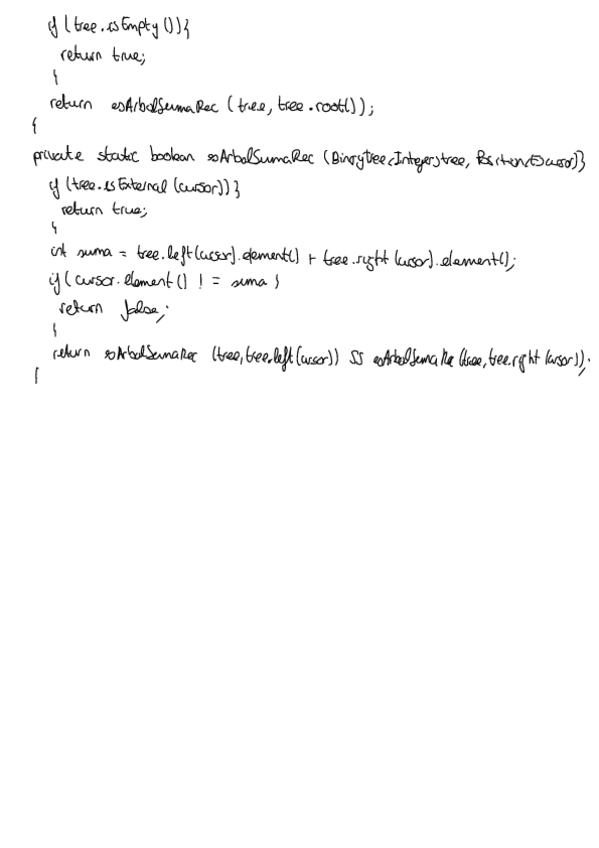 if (tree.isEmpty()){
return true;
}
return esArbolSumaRec (tree, tree.root());
}
private static boolean esArbolSumaRec (BinaryTree<Integer>tree, Position<E>cursor){
if (tree.isExternal (cursor)){
return true;
}
int suma = tree.left(cursor).element() + tree.right (cursor).element();
if( cursor.element() != suma )
return false;
}
return esArbolSumaRec (tree,tree.left(cursor)) && esArbolSumaRec (tree,tree.right (cursor));
}